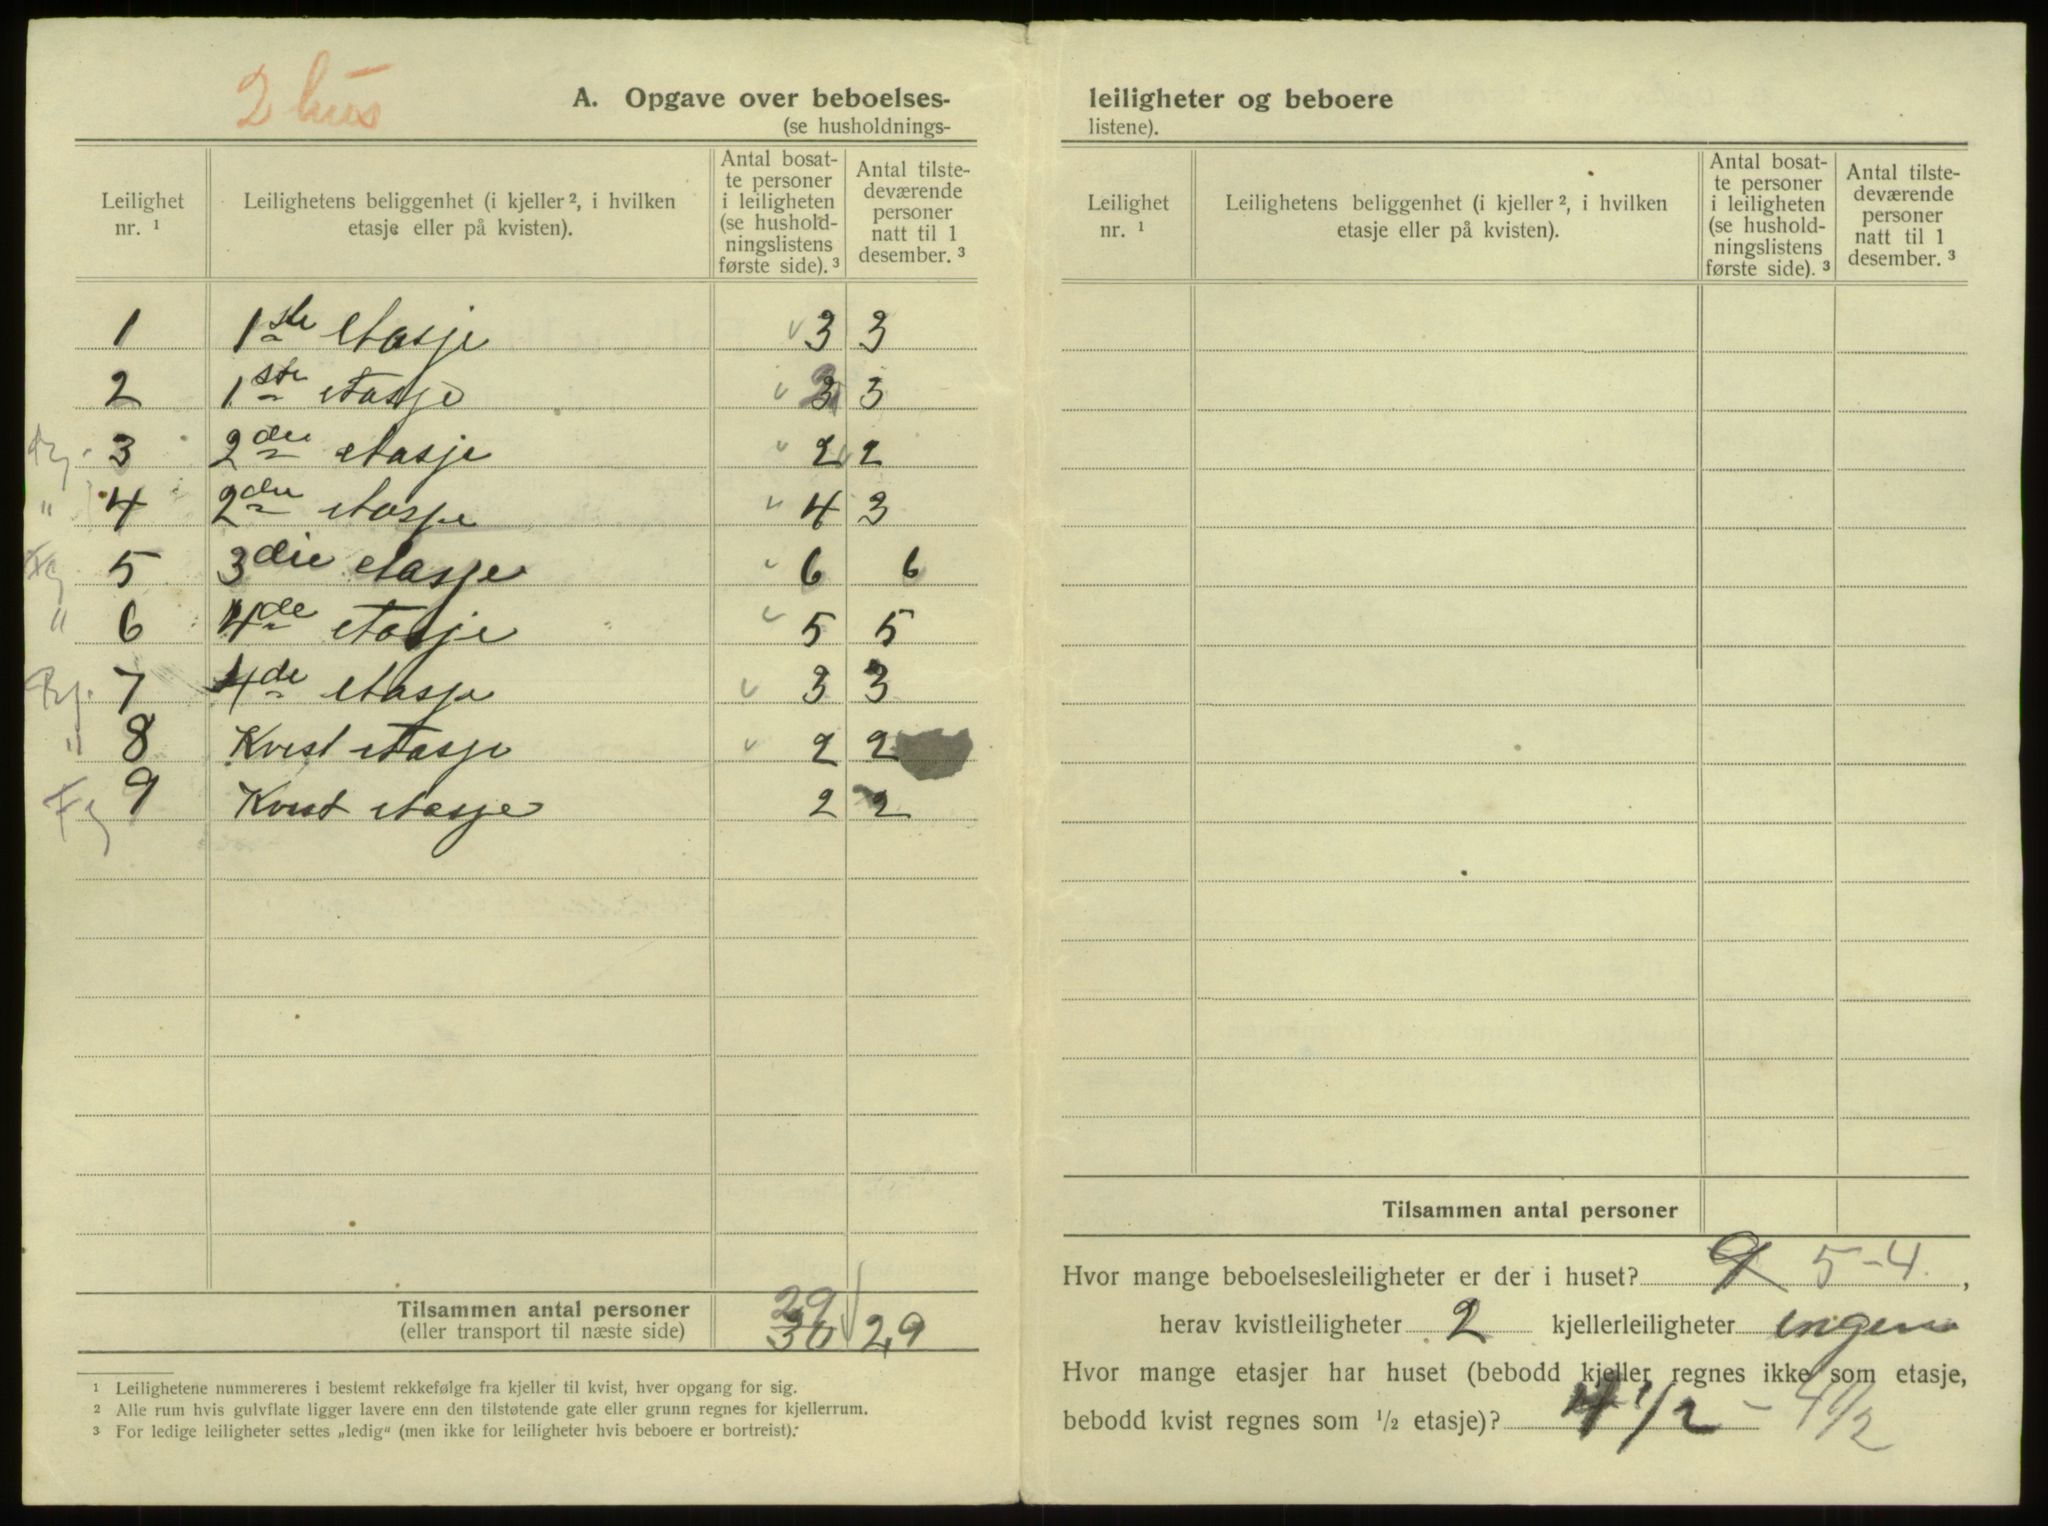 2 hus
A. Opgave over beboelses-
(se husholdnings-
Leilighet nr. ¹ | Leilighetens beliggenhet (i kjeller ², i hvilken etasje eller på kvisten). | Antal bosat- te personer i leiligheten (se hushold- ningslistens første side). ³ | Antal tilste- deværende personer natt til 1 desember. ³
1 1ste etasje v 3 3
2 1ste etasje v 3 3
3 2den etasje v 2 2
" 4 2den etasje v 4 3
Fg 5 3die etasje v 6 6
" 6 4de etasje v 5 5
7 4de etasje v 3 3
" 8 Kvist etasje v 2 2
Fg 9 Kvist etasje 2 2
29
Tilsammen antal personer 30 29
(eller transport til næste side)
¹ Leilighetene nummereres i bestemt rekkefølge fra kjeller til kvist, hver opgang for sig.
² Alle rum hvis gulvflate ligger lavere enn den tilstøtende gate eller grunn regnes for kjellerrum.
³ For ledige leiligheter settes „ledig" (men ikke for leiligheter hvis beboere er bortreist).
leiligheter og beboere
listene).
Leilighet nr. ¹ | Leilighetens beliggenhet (i kjeller ², i hvilken etasje eller på kvisten). | Antal bosat- te personer i leiligheten (se hushold- ningslistens første side). ³ | Antal tilste- deværende personer natt til 1 desember. ³
Tilsammen antal personer
Hvor mange beboelsesleiligheter er der i huset? 9 5-4 ,
herav kvistleiligheter 2 kjellerleiligheter ingen
Hvor mange etasjer har huset (bebodd kjeller regnes ikke som etasje,
bebodd kvist regnes som ½ etasje)? 4 1/2 - 4 1/2